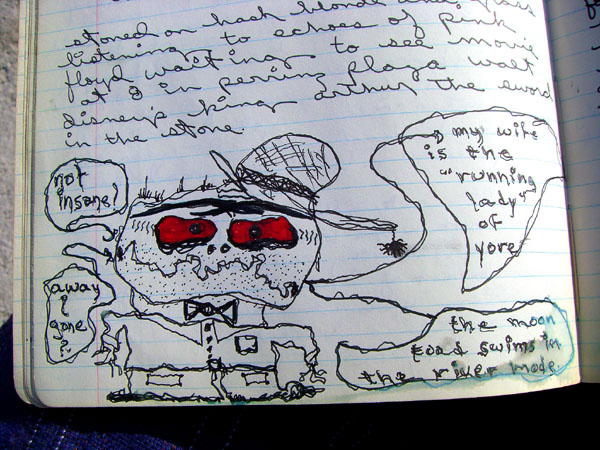 stoned on hash blonde
listening to echoes of pink
floyd waiting to see movie
at 8 in perrine plaza walt
disney's king arthur the sword
in the stone.
not
insane!
my wife
is the
"running
lady"
of
yore
away
&
gone
the moon
toad swims in
the river mode